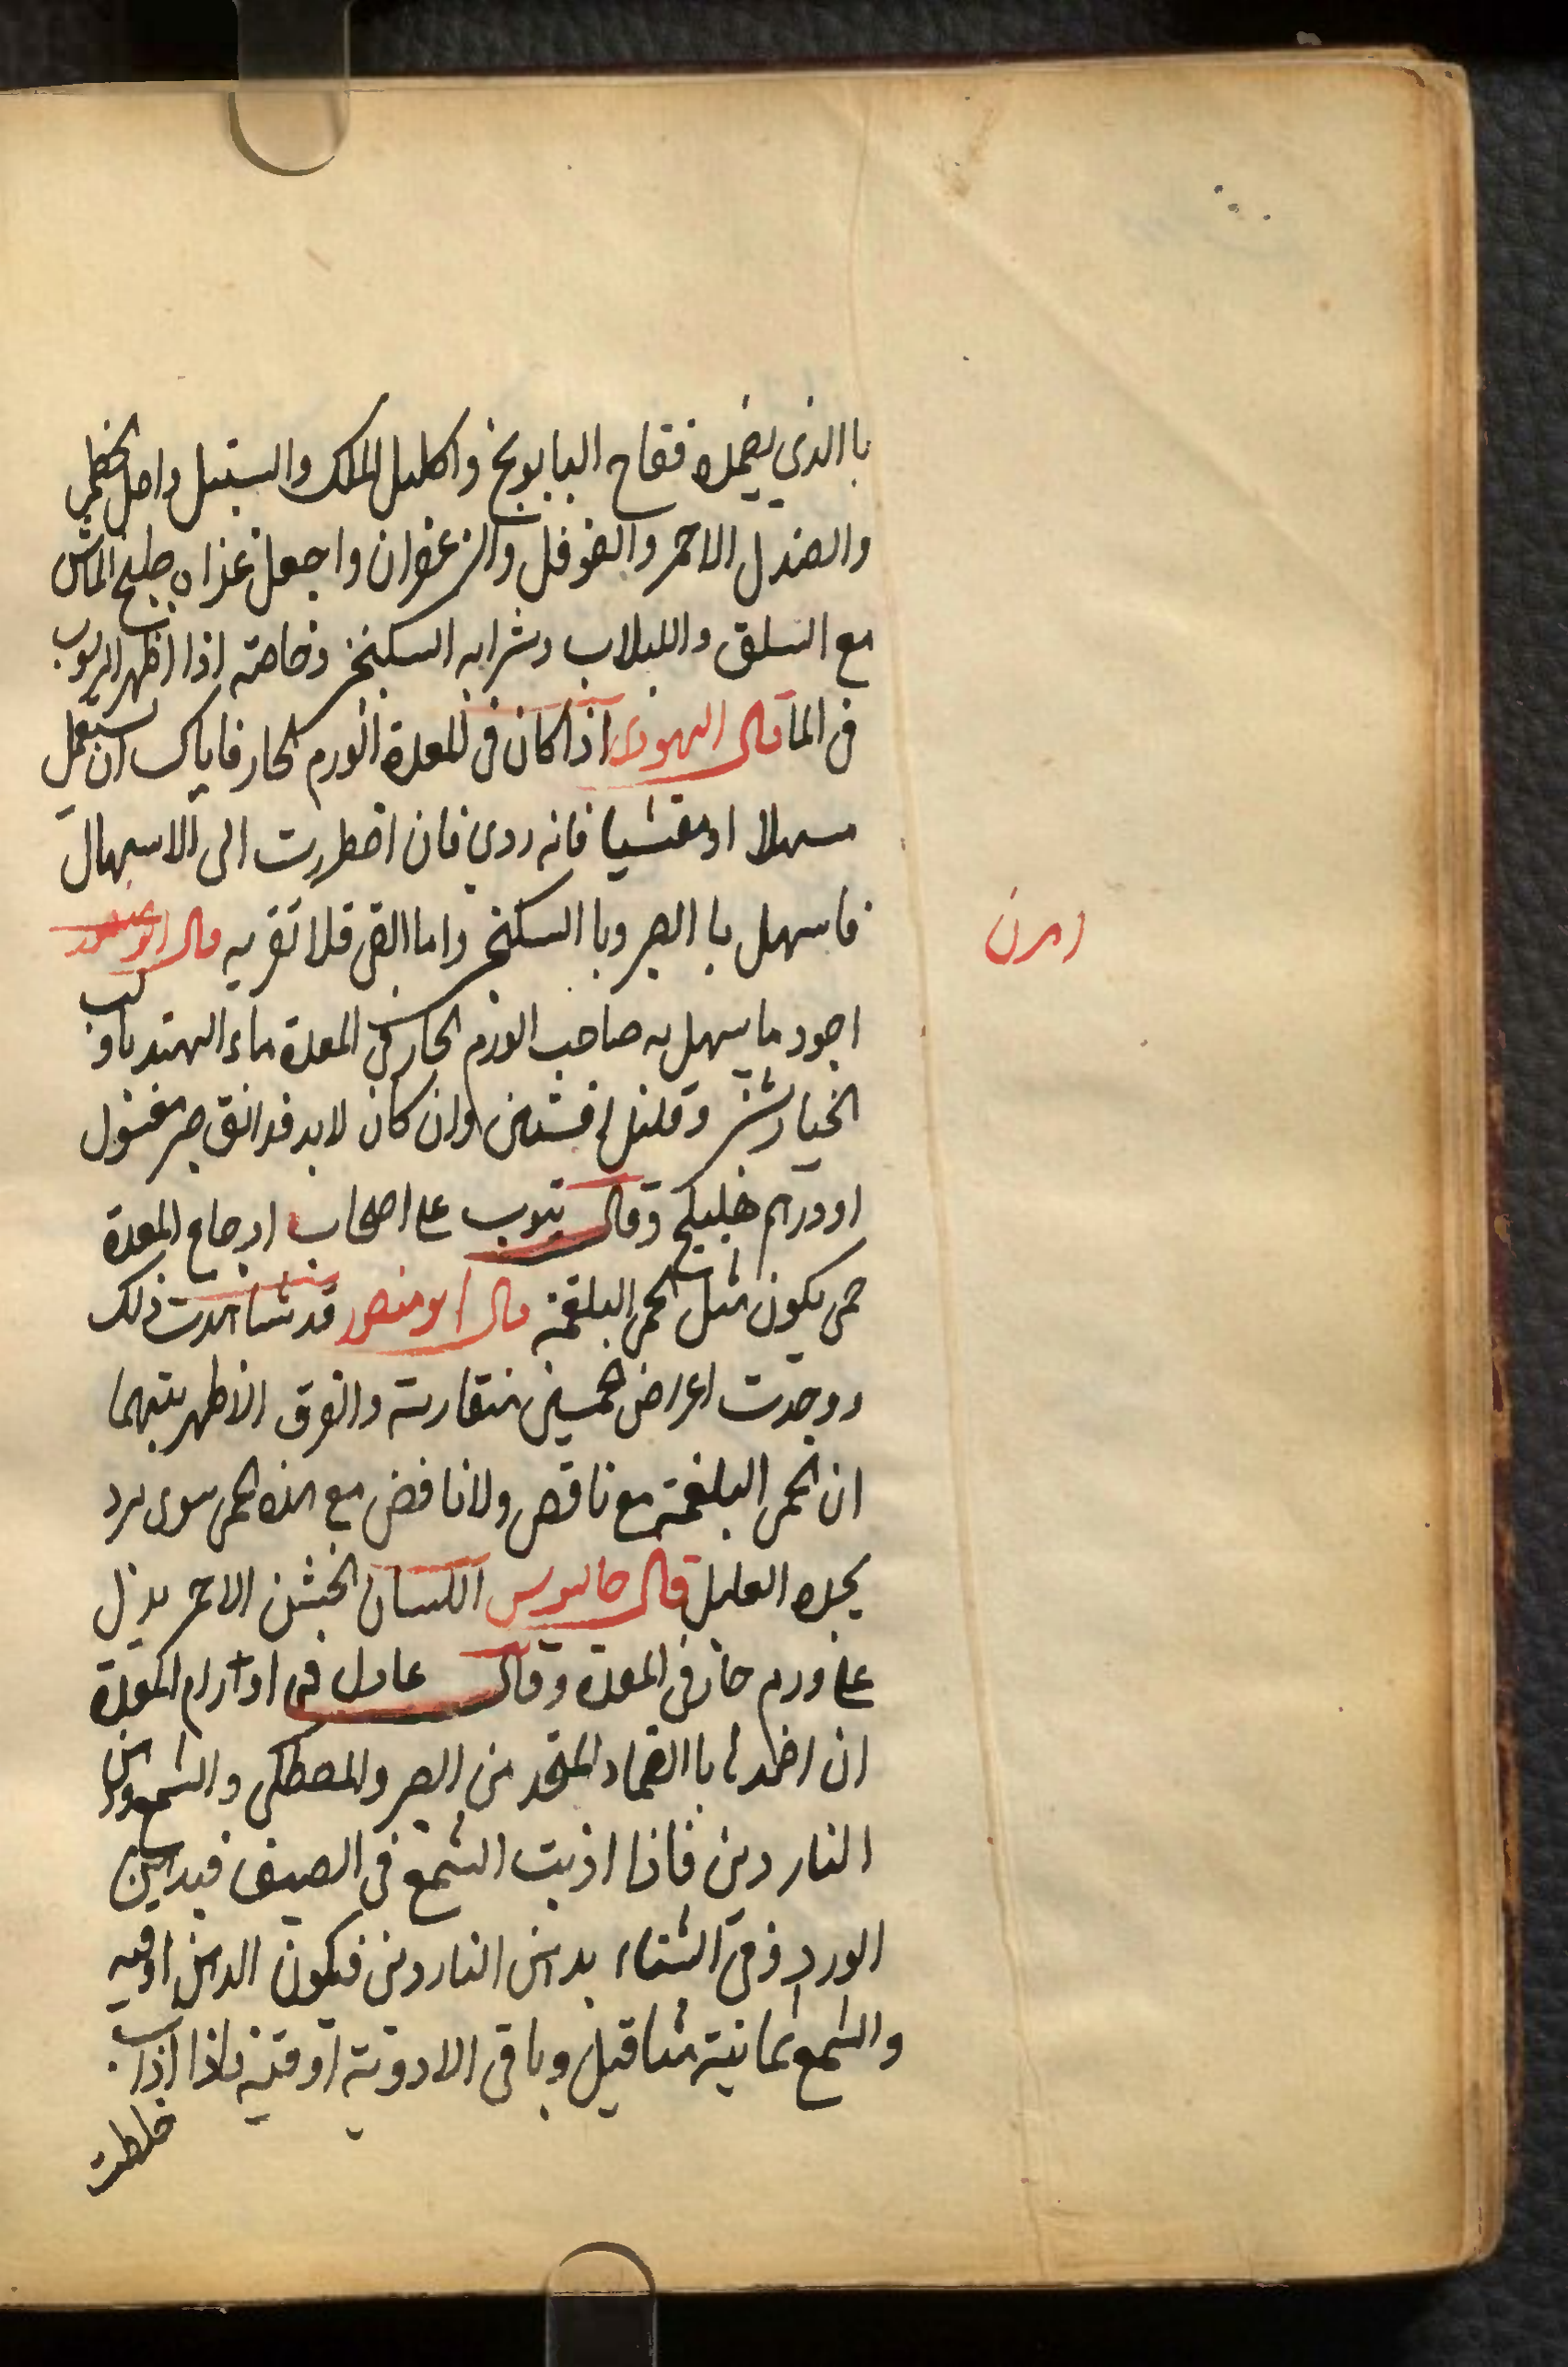 باالذي يضمده فقاح البابونج واكليل الملك والسنبل واصل الخطمي
والصندل الاحمر والفوفل والزعفران واجعل غذاه طبيخ الماش
مع السلق واللبلاب وشرابه السكنجبين وخاصته اذا اظهر الرسوب
في الما قال اليهودي اذا كان في المعدة الورم الحار فاياك ان تستعمل
مسهلا او مقئيا فانه ردي فان اضطررت الى الاسهال
فاسهل باالصبر وباالسكنجبين واما القي فلا تقربه قال ابو منصور
اهرن
اجود ما يسهل به صاحب الورم الحار في المعدة ماء الهندبا ولب
الخيارشنبر وقليل افسنتين وان كان لابد فدانق صبر مغسول
او درهم هليلج وقال ينوب على اصحاب اوجاع المعدة
حمى يكون مثل الحمى البلغمية قال ابو منصور قد شاهدت ذلك
ووجدت اعراض الحميين متقاربة والفرق الاظهر بينهما
ان الحمى البلغمية مع ناقص ولا نافض مع هذه الحمى سوى برد
يجده العليل قال جالينوس اللسان الخشن الاحمر يدل
على ورم حار في المعدة وقال عادل في اورام المعدة
ان اضمدها باالضماد المتخذ من الصبر والمصطكى والشمع ودهن
الناردين فاذا اذبت الشمع في الصيف فبدهن
الورد وفي الشتاء بدهن الناردين فيكون الدهن اوقيه
والشمع ثمانية مثاقيل وباقي الادوية اوقية فاذا اذاب
خلطت